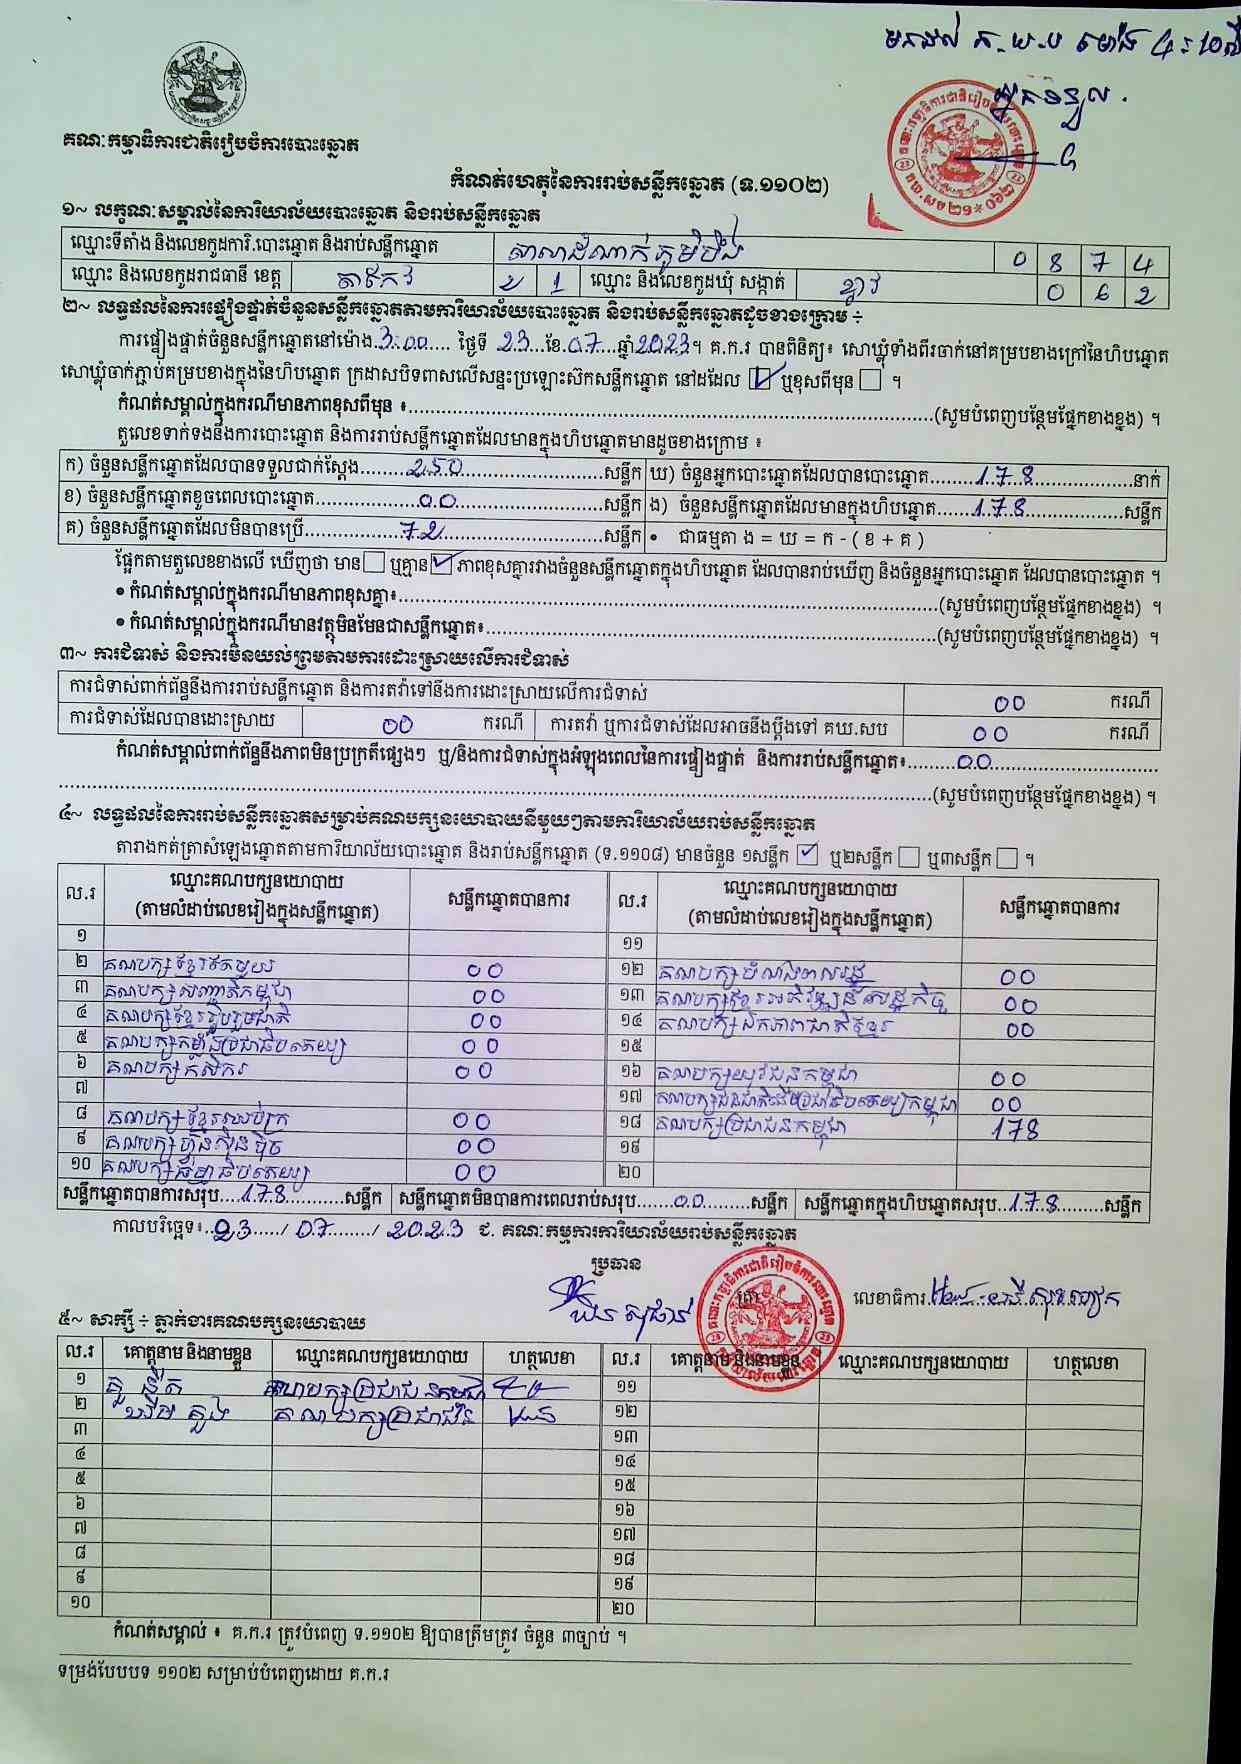 គណៈកម្មាធិការជាតិរៀបចំការបោះឆ្នោត
កំណត់ហេតុនៃការរាប់សន្លឹកឆ្នោត (ទ.១១០២)
១~ លក្ខណៈសម្គាល់នៃការិយាល័យបោះឆ្នោត និងរាប់សន្លឹកឆ្នោត
ឈ្មោះទីតាំង និងលេខកូដការិ.បោះឆ្នោត និងរាប់សន្លឹកឆ្នោត សាលាដំណាក់ភូមិបឹង 0 8 7 4
ឈ្មោះ និងលេខកូដរាជធានី ខេត្ត តាកែវ 2 1 ឈ្មោះ និងលេខកូដឃុំ សង្កាត់ ខ្វាវ 0 6 2
២~ លទ្ធផលនៃការផ្ទៀងផ្ទាត់ចំនួនសន្លឹកឆ្នោតតាមការិយាល័យបោះឆ្នោត និងរាប់សន្លឹកឆ្នោតដូចខាងក្រោម ÷
ការផ្ទៀងផ្ទាត់ចំនួនសន្លឹកឆ្នោតនៅម៉ោង 3:00 ថ្ងៃទី 23 ខែ 07 ឆ្នាំ 2023 ។ គ.ក.រ បានពិនិត្យ៖ សោឃ្លុំទាំងពីរចាក់នៅគម្របខាងក្រៅនៃហិបឆ្នោត
សោឃ្លុំចាក់ភ្ជាប់គម្របខាងក្នុងនៃហិបឆ្នោត ក្រដាសបិទពាសលើសន្ទះប្រឡោះស៊កសន្លឹកឆ្នោត នៅដដែល ☑ ឬខុសពីមុន ☐ ។
កំណត់សម្គាល់ក្នុងករណីមានភាពខុសពីមុន ៖ (សូមបំពេញបន្ថែមផ្នែកខាងខ្នង) ។
តួលេខទាក់ទងនឹងការបោះឆ្នោត និងការរាប់សន្លឹកឆ្នោតដែលមានក្នុងហិបឆ្នោតមានដូចខាងក្រោម ៖
ក) ចំនួនសន្លឹកឆ្នោតដែលបានទទួលជាក់ស្ដែង 250 សន្លឹក ឃ) ចំនួនអ្នកបោះឆ្នោតដែលបានបោះឆ្នោត 178 នាក់
ខ) ចំនួនសន្លឹកឆ្នោតខូចពេលបោះឆ្នោត 00 សន្លឹក ង) ចំនួនសន្លឹកឆ្នោតដែលមានក្នុងហិបឆ្នោត 178 សន្លឹក
គ) ចំនួនសន្លឹកឆ្នោតដែលមិនបានប្រើ 72 សន្លឹក • ជាធម្មតា ង = ឃ = ក - ( ខ + គ )
ផ្អែកតាមតួលេខខាងលើ ឃើញថា មាន ☐ ឬគ្មាន ☑ ភាពខុសគ្នារវាងចំនួនសន្លឹកឆ្នោតក្នុងហិបឆ្នោត ដែលបានរាប់ឃើញ និងចំនួនអ្នកបោះឆ្នោត ដែលបានបោះឆ្នោត ។
• កំណត់សម្គាល់ក្នុងករណីមានភាពខុសគ្នា៖ (សូមបំពេញបន្ថែមផ្នែកខាងខ្នង) ។
• កំណត់សម្គាល់ក្នុងករណីមានវត្ថុមិនមែនជាសន្លឹកឆ្នោត៖ (សូមបំពេញបន្ថែមផ្នែកខាងខ្នង) ។
៣~ ការជំទាស់ និងការមិនយល់ព្រមតាមការដោះស្រាយលើការជំទាស់
ការជំទាស់ពាក់ព័ន្ធនឹងការរាប់សន្លឹកឆ្នោត និងការតវ៉ាទៅនឹងការដោះស្រាយលើការជំទាស់ 00 ករណី
ការជំទាស់ដែលបានដោះស្រាយ 00 ករណី ការតវ៉ា ឬការជំទាស់ដែលអាចនឹងប្ដឹងទៅ គឃ.សប 00 ករណី
កំណត់សម្គាល់ពាក់ព័ន្ធនឹងភាពមិនប្រក្រតីផ្សេងៗ ឬ/និងការជំទាស់ក្នុងអំឡុងពេលនៃការផ្ទៀងផ្ទាត់ និងការរាប់សន្លឹកឆ្នោត៖ 00
(សូមបំពេញបន្ថែមផ្នែកខាងខ្នង) ។
៤~ លទ្ធផលនៃការរាប់សន្លឹកឆ្នោតសម្រាប់គណបក្សនយោបាយនីមួយៗតាមការិយាល័យរាប់សន្លឹកឆ្នោត
តារាងកត់ត្រាសំឡេងឆ្នោតតាមការិយាល័យបោះឆ្នោត និងរាប់សន្លឹកឆ្នោត (ទ.១១០៨) មានចំនួន ១សន្លឹក ☑ ឬ២សន្លឹក ☐ ឬ៣សន្លឹក ☐ ។
ល.រ ឈ្មោះគណបក្សនយោបាយ (តាមលំដាប់លេខរៀងក្នុងសន្លឹកឆ្នោត) សន្លឹកឆ្នោតបានការ ល.រ ឈ្មោះគណបក្សនយោបាយ (តាមលំដាប់លេខរៀងក្នុងសន្លឹកឆ្នោត) សន្លឹកឆ្នោតបានការ
១ ១១
២ គណបក្សខ្មែរតែមួយ 00 ១២ គណបក្សបំណងពលរដ្ឋ 00
៣ គណបក្សសញ្ជាតិកម្ពុជា 00 ១៣ គណបក្សខ្មែរអភិវឌ្ឍន៍សេដ្ឋកិច្ច 00
៤ គណបក្សខ្មែររួបរួមជាតិ 00 ១៤ គណបក្សឯកភាពជាតិខ្មែរ 00
៥ គណបក្សកម្លាំងប្រជាធិបតេយ្យ 00 ១៥
៦ គណបក្សកសិករ 00 ១៦ គណបក្សយុវជនកម្ពុជា 00
៧ ១៧ គណបក្សជនជាតិដើមប្រជាធិបតេយ្យកម្ពុជា 00
៨ គណបក្សខ្មែរឈប់ក្រ 00 ១៨ គណបក្សប្រជាជនកម្ពុជា 178
៩ គណបក្សហ្វ៊ុនស៊ិនប៉ិច 00 ១៩
១០ គណបក្សធម្មាធិបតេយ្យ 00 ២០
សន្លឹកឆ្នោតបានការសរុប 178 សន្លឹក សន្លឹកឆ្នោតមិនបានការពេលរាប់សរុប 00 សន្លឹក សន្លឹកឆ្នោតក្នុងហិបឆ្នោតសរុប 178 សន្លឹក
កាលបរិច្ឆេទ៖ 23 / 07 / 2023 ជ. គណៈកម្មការការិយាល័យរាប់សន្លឹកឆ្នោត
ប្រធាន
លេខាធិការ
៥~ សាក្សី ÷ ភ្នាក់ងារគណបក្សនយោបាយ
ល.រ គោត្តនាម និងនាមខ្លួន ឈ្មោះគណបក្សនយោបាយ ហត្ថលេខា ល.រ គោត្តនាម និងនាមខ្លួន ឈ្មោះគណបក្សនយោបាយ ហត្ថលេខា
១ គណបក្សប្រជាជនកម្ពុជា ១១
២ គណបក្សប្រជាជន ១២
៣ ១៣
៤ ១៤
៥ ១៥
៦ ១៦
៧ ១៧
៨ ១៨
៩ ១៩
១០ ២០
កំណត់សម្គាល់ ៖ គ.ក.រ ត្រូវបំពេញ ទ.១១០២ ឱ្យបានត្រឹមត្រូវ ចំនួន ៣ច្បាប់ ។
ទម្រង់បែបបទ ១១០២ សម្រាប់បំពេញដោយ គ.ក.រ